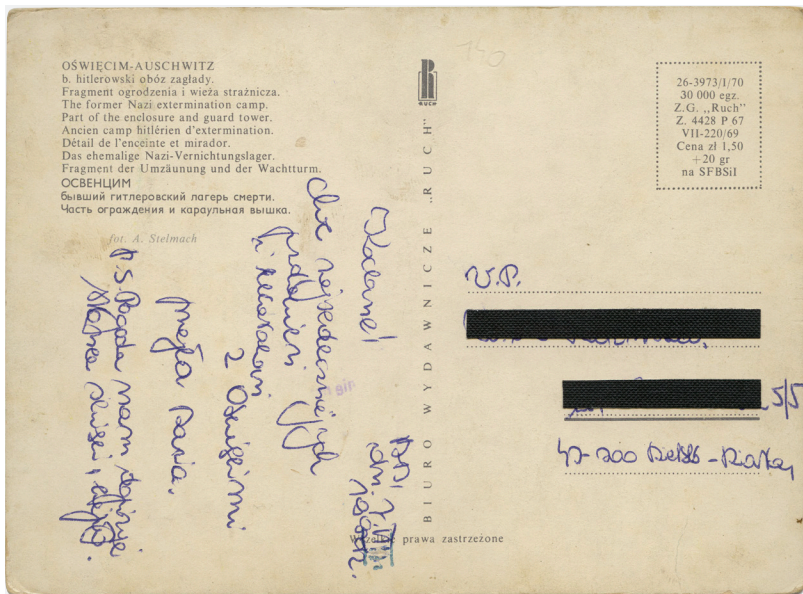 OŚWIĘCIM-AUSCHWITZ
b. hitlerowski obóz zagłady.
Fragment ogrodzenia i wieża strażnicza.
The former Nazi extermination camp.
Part of the enclosure and guard tower.
Ancien camp hitlérien d'extermination.
Détail de l'enceinte et mirador.
Das ehemalige Nazi-Vernichtungslager.
Fragment der Umzäunung und der Wachtturm.
ОСВЕНЦИМ
бывший гитлеровский лагерь смерти.
Часть ограждения и караульная вышка.
fot. A. Stelmach
RUCH
BIURO WYDAWNICZE „RUCH"
140
26-3973/I/70
30 000 egz.
Z.G. „Ruch"
Z. 4428 P 67
VII-220/69
Cena zł 1,50
+20 gr
na SFBSiI
Kochane!
pozdrowień
z Oświęcimia
P.S. Pogoda nam dopisuje
W.P.
5/5
43-300 Bielsko-Biała
Wszelkie prawa zastrzeżone